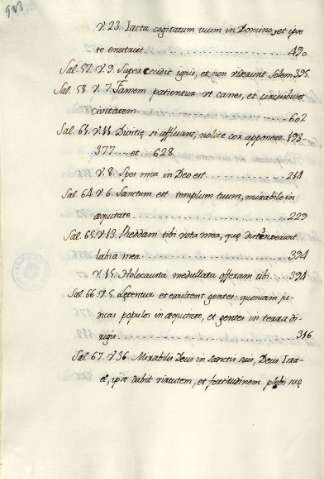 983
V. 23. Iacta cogitatum tuum in Domino, et ipse
te enutriet. 430
Sal. 57. V. 9. Supercecidit ignis, et non viderunt Solem 395.
Sal. 58. V. 7. Famem patientur ut canes, et circuibunt
civitatem 602
Sal. 61. V. 11. Divitiæ si affluant, nolite cor apponere 193
377 et 628
V. 8. Spes mea in Deo est. 214
Sal. 64. V. 6. Sanctum est templum tuum, mirabile in
æquitate. 229
Sal. 65. V. 13. Reddam tibi vota mea, quæ distinxerunt
labia mea. 334
V. 15. Holocausta medullata offeram tibi 334
Sal. 66. V. 5. Lætentur et exultent gentes: quoniam ju-
dicas populos in æquitate, et gentes in terra di-
rigis 316
Sal. 67. V. 36. Mirabilis Deus in sanctis suis, Deus Isra-
el, ipse dabit virtutem, et fortitudinem plebi suæ